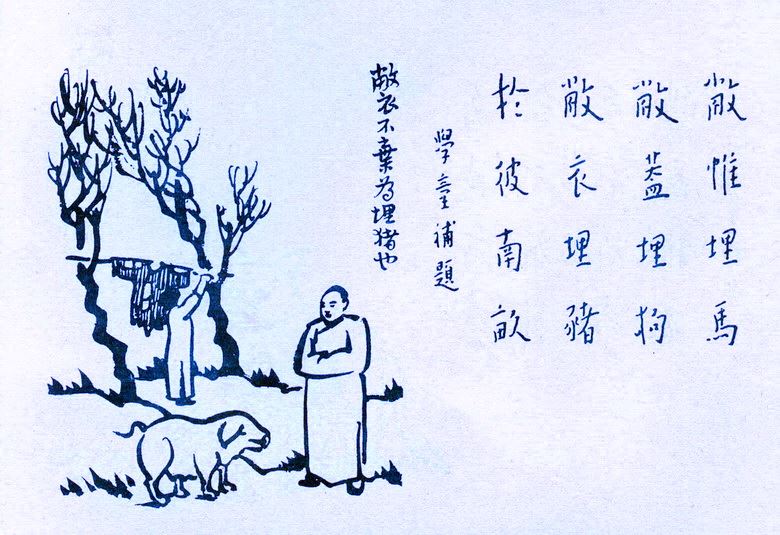 敝帷埋馬
敝蓋埋狗
敝衣埋豬
於彼南畝
學童補題
敝衣不棄為埋猪也